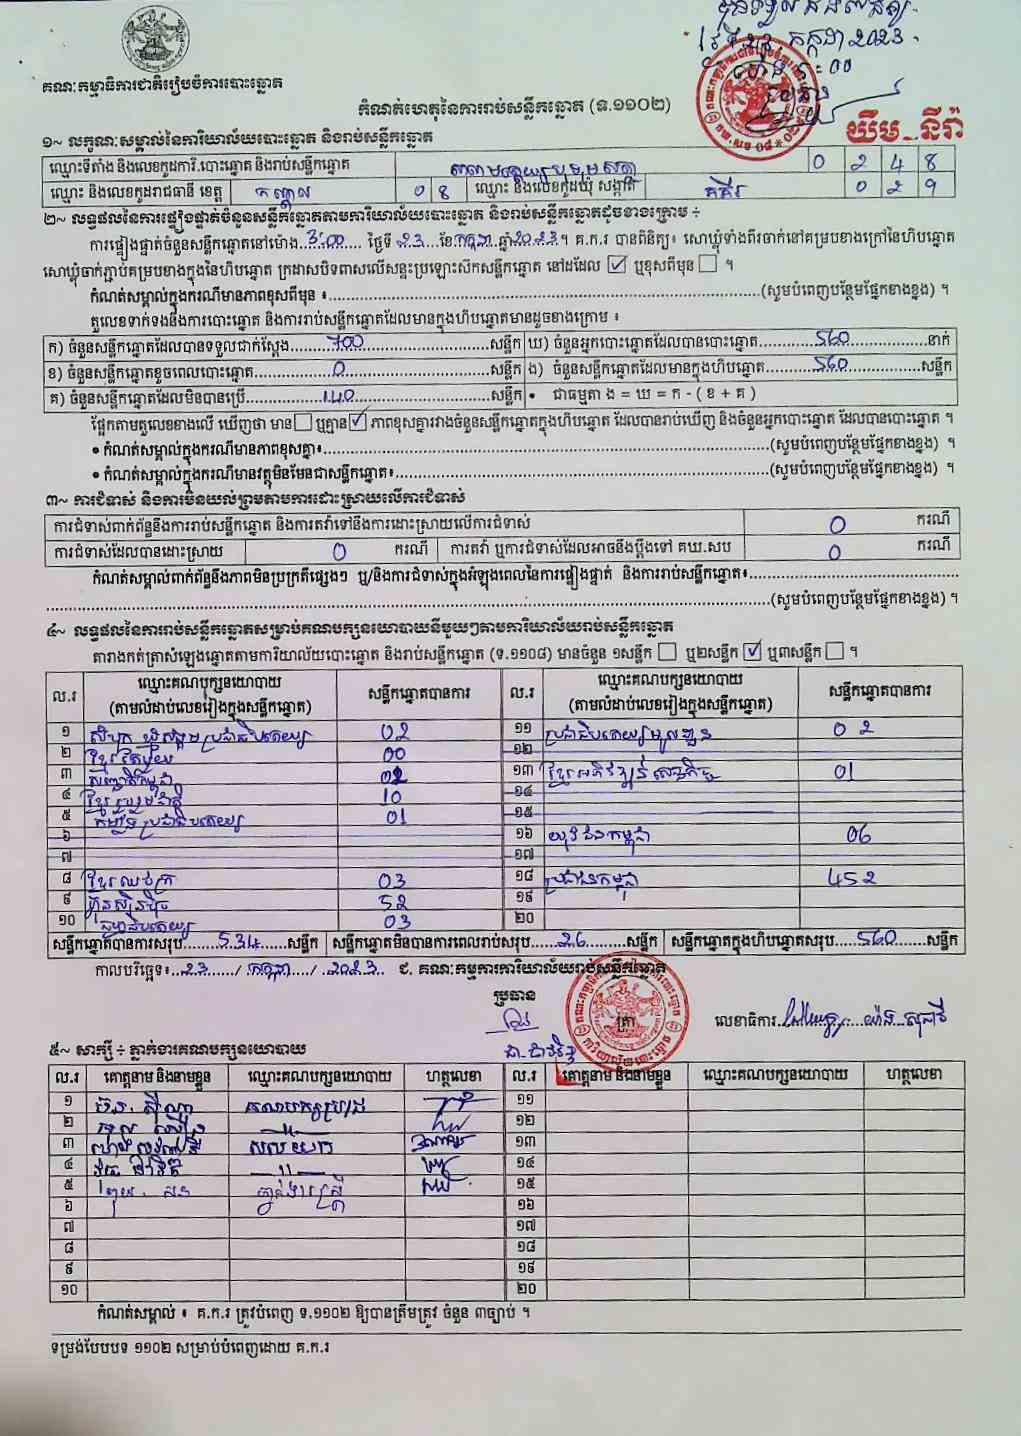 គណៈកម្មាធិការជាតិរៀបចំការបោះឆ្នោត
កក្កដា 2023
កំណត់ហេតុនៃការរាប់សន្លឹកឆ្នោត (ទ.១១០២)
ឃឹម នីរ៉ា
១~ លក្ខណៈសម្គាល់នៃការិយាល័យបោះឆ្នោត និងរាប់សន្លឹកឆ្នោត
ឈ្មោះទីតាំង និងលេខកូដការិ.បោះឆ្នោត និងរាប់សន្លឹកឆ្នោត 0 2 4 8
ឈ្មោះ និងលេខកូដរាជធានី ខេត្ត កណ្តាល 0 8 ឈ្មោះ និងលេខកូដឃុំ សង្កាត់ គគីរ 0 2 9
២~ លទ្ធផលនៃការផ្ទៀងផ្ទាត់ចំនួនសន្លឹកឆ្នោតតាមការិយាល័យបោះឆ្នោត និងរាប់សន្លឹកឆ្នោតដូចខាងក្រោម ÷
ការផ្ទៀងផ្ទាត់ចំនួនសន្លឹកឆ្នោតនៅម៉ោង 3:00 ថ្ងៃទី 23 ខែ កក្កដា ឆ្នាំ 2023 ។ គ.ក.រ បានពិនិត្យ៖ សោឃ្លុំទាំងពីរចាក់នៅគម្របខាងក្រៅនៃហិបឆ្នោត
សោឃ្លុំចាក់ភ្ជាប់គម្របខាងក្នុងនៃហិបឆ្នោត ក្រដាសបិទពាសលើសន្ទះប្រឡោះសឹកសន្លឹកឆ្នោត នៅដដែល ☑ ឬខុសពីមុន ☐ ។
កំណត់សម្គាល់ក្នុងករណីមានភាពខុសពីមុន ៖ (សូមបំពេញបន្ថែមផ្នែកខាងខ្នង) ។
តួលេខទាក់ទងនឹងការបោះឆ្នោត និងការរាប់សន្លឹកឆ្នោតដែលមានក្នុងហិបឆ្នោតមានដូចខាងក្រោម ៖
ក) ចំនួនសន្លឹកឆ្នោតដែលបានទទួលជាក់ស្តែង 700 សន្លឹក ឃ) ចំនួនអ្នកបោះឆ្នោតដែលបានបោះឆ្នោត 560 នាក់
ខ) ចំនួនសន្លឹកឆ្នោតខូចពេលបោះឆ្នោត 0 សន្លឹក ង) ចំនួនសន្លឹកឆ្នោតដែលមានក្នុងហិបឆ្នោត 560 សន្លឹក
គ) ចំនួនសន្លឹកឆ្នោតដែលមិនបានប្រើ 140 សន្លឹក • ជាធម្មតា ង = ឃ = ក - ( ខ + គ )
ផ្អែកតាមតួលេខខាងលើ ឃើញថា មាន ☐ ឬគ្មាន ☑ ភាពខុសគ្នារវាងចំនួនសន្លឹកឆ្នោតក្នុងហិបឆ្នោត ដែលបានរាប់ឃើញ និងចំនួនអ្នកបោះឆ្នោត ដែលបានបោះឆ្នោត ។
• កំណត់សម្គាល់ក្នុងករណីមានភាពខុសគ្នា៖ (សូមបំពេញបន្ថែមផ្នែកខាងខ្នង) ។
• កំណត់សម្គាល់ក្នុងករណីមានវត្ថុមិនមែនជាសន្លឹកឆ្នោត៖ (សូមបំពេញបន្ថែមផ្នែកខាងខ្នង) ។
៣~ ការជំទាស់ និងការមិនយល់ព្រមតាមការដោះស្រាយលើការជំទាស់
ការជំទាស់ពាក់ព័ន្ធនឹងការរាប់សន្លឹកឆ្នោត និងការតវ៉ាទៅនឹងការដោះស្រាយលើការជំទាស់ 0 ករណី
ការជំទាស់ដែលបានដោះស្រាយ 0 ករណី ការតវ៉ា ឬការជំទាស់ដែលអាចនឹងប្តឹងទៅ គឃ.សប 0 ករណី
កំណត់សម្គាល់ពាក់ព័ន្ធនឹងភាពមិនប្រក្រតីផ្សេងៗ ឬ/និងការជំទាស់ក្នុងអំឡុងពេលនៃការផ្ទៀងផ្ទាត់ និងការរាប់សន្លឹកឆ្នោត៖
(សូមបំពេញបន្ថែមផ្នែកខាងខ្នង) ។
៤~ លទ្ធផលនៃការរាប់សន្លឹកឆ្នោតសម្រាប់គណបក្សនយោបាយនីមួយៗតាមការិយាល័យរាប់សន្លឹកឆ្នោត
តារាងកត់ត្រាសំឡេងឆ្នោតតាមការិយាល័យបោះឆ្នោត និងរាប់សន្លឹកឆ្នោត (ទ.១១០៨) មានចំនួន ១សន្លឹក ☐ ឬ២សន្លឹក ☑ ឬ៣សន្លឹក ☐ ។
ល.រ ឈ្មោះគណបក្សនយោបាយ (តាមលំដាប់លេខរៀងក្នុងសន្លឹកឆ្នោត) សន្លឹកឆ្នោតបានការ ល.រ ឈ្មោះគណបក្សនយោបាយ (តាមលំដាប់លេខរៀងក្នុងសន្លឹកឆ្នោត) សន្លឹកឆ្នោតបានការ
១ សំបុកឃ្មុំសង្គមប្រជាធិបតេយ្យ 02 ១១ ប្រជាធិបតេយ្យមូលដ្ឋាន 02
២ ខ្មែរតែមួយ 00 ១២
៣ សញ្ជាតិកម្ពុជា 02 ១៣ ខ្មែរអភិវឌ្ឍន៍សេដ្ឋកិច្ច 01
៤ ខ្មែររួបរួមជាតិ 10 ១៤
៥ កម្លាំងប្រជាធិបតេយ្យ 01 ១៥
៦ ១៦ យុវជនកម្ពុជា 06
៧ ១៧
៨ ខ្មែរឈប់ក្រ 03 ១៨ ប្រជាជនកម្ពុជា 452
៩ ហ្វ៊ុនស៊ិនប៉ិច 52 ១៩
១០ ធម្មាធិបតេយ្យ 03 ២០
សន្លឹកឆ្នោតបានការសរុប 534 សន្លឹក សន្លឹកឆ្នោតមិនបានការពេលរាប់សរុប 26 សន្លឹក សន្លឹកឆ្នោតក្នុងហិបឆ្នោតសរុប 560 សន្លឹក
កាលបរិច្ឆេទ៖ 23 / កក្កដា / 2023 ជ. គណៈកម្មការការិយាល័យរាប់សន្លឹកឆ្នោត
ប្រធាន
ត្រា លេខាធិការ
៥~ សាក្សី ÷ ភ្នាក់ងារគណបក្សនយោបាយ
ល.រ គោត្តនាម និងនាមខ្លួន ឈ្មោះគណបក្សនយោបាយ ហត្ថលេខា ល.រ គោត្តនាម និងនាមខ្លួន ឈ្មោះគណបក្សនយោបាយ ហត្ថលេខា
១ ១១
២ ១២
៣ ១៣
៤ ១៤
៥ ១៥
៦ ១៦
៧ ១៧
៨ ១៨
៩ ១៩
១០ ២០
កំណត់សម្គាល់ ៖ គ.ក.រ ត្រូវបំពេញ ទ.១១០២ ឱ្យបានត្រឹមត្រូវ ចំនួន ៣ច្បាប់ ។
ទម្រង់បែបបទ ១១០២ សម្រាប់បំពេញដោយ គ.ក.រ